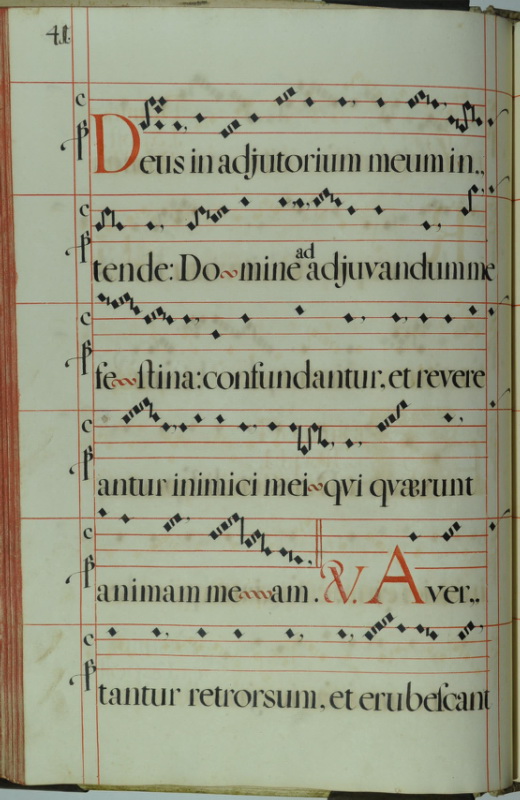 41
Deus in adjutorium meum in..
tende: Do~mine ad adjuvandum me
fe~ſtina: confundantur. et revere
antur inimici mei~qvi qværunt
animam me~am. V. Aver..
tantur retrorsum, et erubeſcant